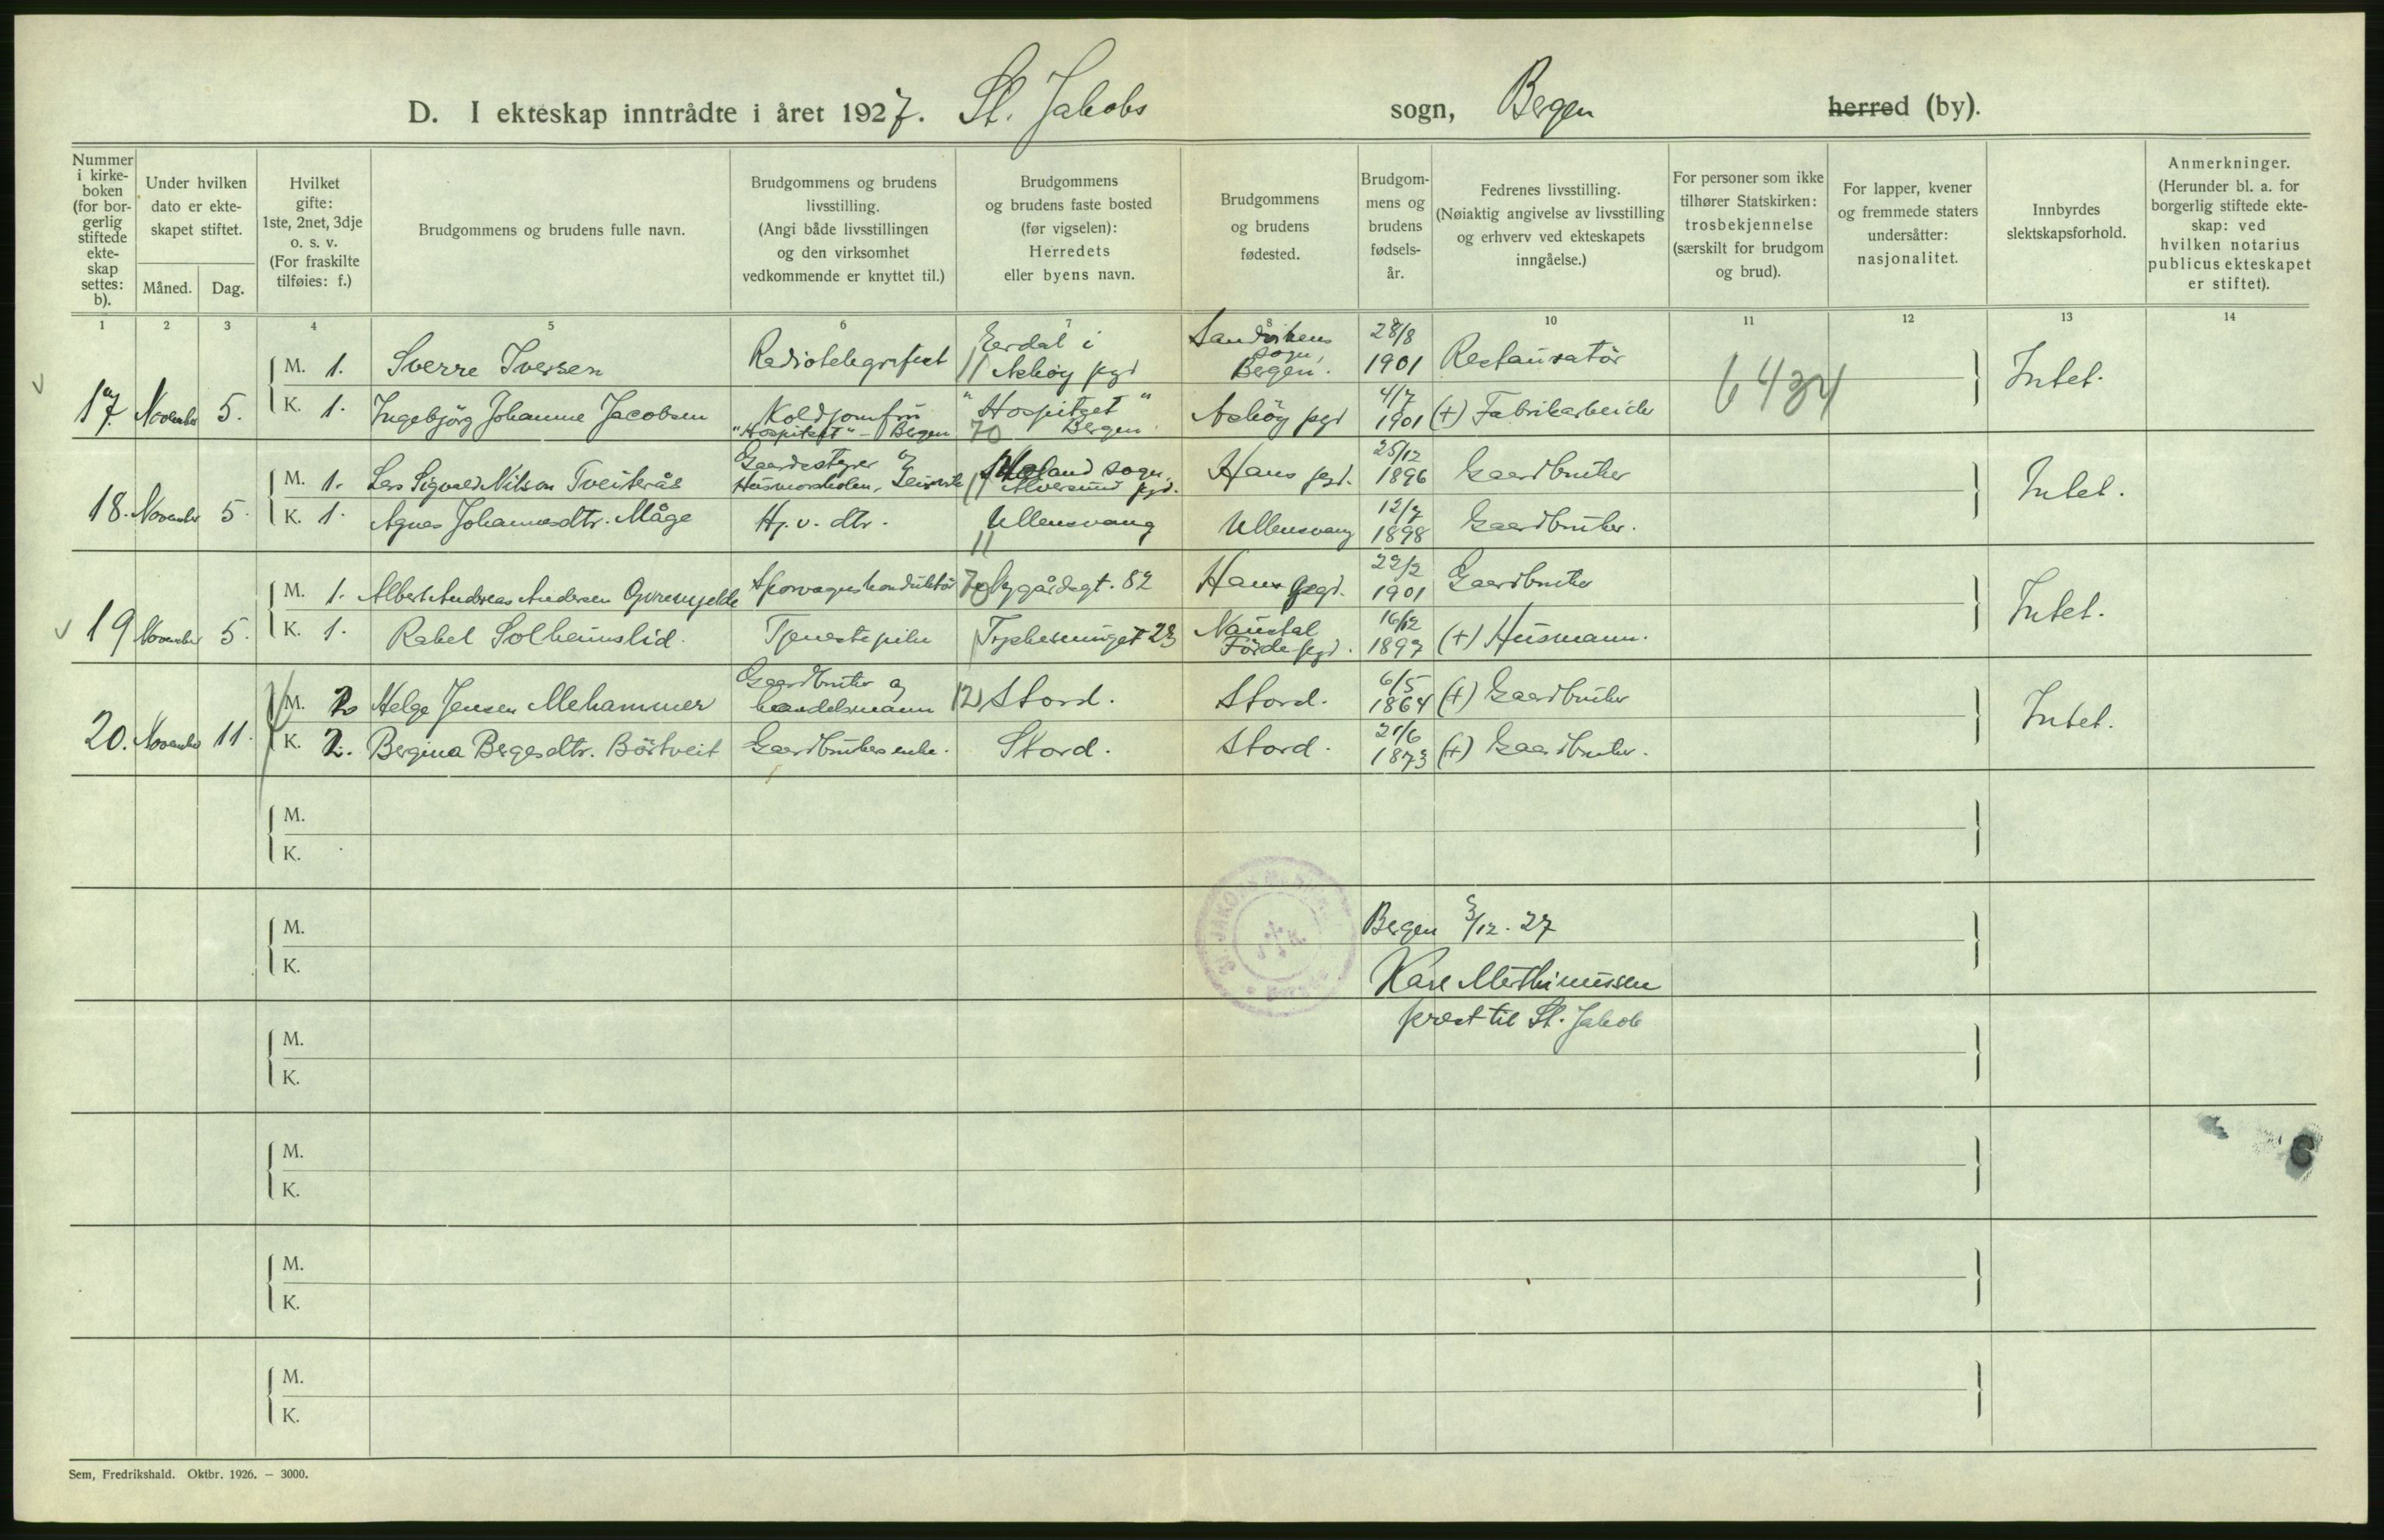 D. I ekteskap inntrådte i året 1927. St. Jakobs sogn, Bergen herred (by).
Nummer i kirke-boken (for bor-gerlig stiftede ekte-skap settes: b).
Under hvilken dato er ekte-skapet stiftet.
Måned. Dag.
Hvilket gifte: 1ste, 2net, 3dje o. s. v. (For fraskilte tilføies: f.)
Brudgommens og brudens fulle navn.
Brudgommens og brudens livsstilling. (Angi både livsstillingen og den virksomhet vedkommende er knyttet til.)
Brudgommens og brudens faste bosted (før vigselen): Herredets eller byens navn.
Brudgommens og brudens fødested.
Brudgom-mens og brudens fødsels-år.
Fedrenes livsstilling. (Nøiaktig angivelse av livsstilling og erhverv ved ekteskapets inngåelse.)
For personer som ikke tilhører Statskirken: trosbekjennelse (særskilt for brudgom og brud).
For lapper, kvener og fremmede staters undersåtter: nasjonalitet.
Innbyrdes slektskapsforhold.
Anmerkninger. (Herunder bl. a. for borgerlig stiftede ekte-skap: ved hvilken notarius publicus ekteskapet er stiftet).
1 2 3 4 5 6 7 8 10 11 12 13 14
17. November 5.
M. 1. Sverre Iversen Radiotelegrafist Eerdal i Askøy pgd 11 Sandvikens sogn, Bergen. 28/8 1901 Restauratör
K. 1. Ingebjörg Johanne Jacobsen Koldjomfru "Hospitset" - Bergen "Hospitset" Bergen 70 Asköy pgd 4/7 1901 (+) Fabrikarbeider
6434 Intet.
18. November 5.
M. 1. Lars Sigvald Nilsen Tveiterås Gaardsstyrer Husmorskolen, sogn, Alversund pgd. 11 Haus pgd. 25/12 1896 Gaardbruker
K. 1. Agnes Johannesdtr. Måge Hj. v. dtr. Ullensvang 11 Ullensvang 12/7 1898 Gaardbruker.
Intet.
19 November 5.
M. 1. Albert Andreas Andersen Sporvognskonduktör 70 Nygårdsgt. 82 Haus pgd. 22/2 1901 Gaardbruker
K. 1. Rakel Solheimslid. Tjenestepike 23 Naustdal Förde pgd. 16/12 1897 (+) Husmann.
Intet.
20. November 11.
M. 2. Helge Jensen Mehammer Gaardbruker og handelsmann 12) Stord. Stord. 6/5 1864 (+) Gaardbruker
K. 2. Bergina Bergesdtr. Börtveit Gaardbrukerenke. Stord. Stord. 21/6 1873 (+) Gaardbruker.
Intet.
M.
K.
M.
K.
Bergen 3/12. 27
Karl Marthinussen
prest til St. Jakob
M.
K.
M.
K.
M.
K.
M.
K.
Sem, Fredrikshald. Oktbr. 1926. – 3000.